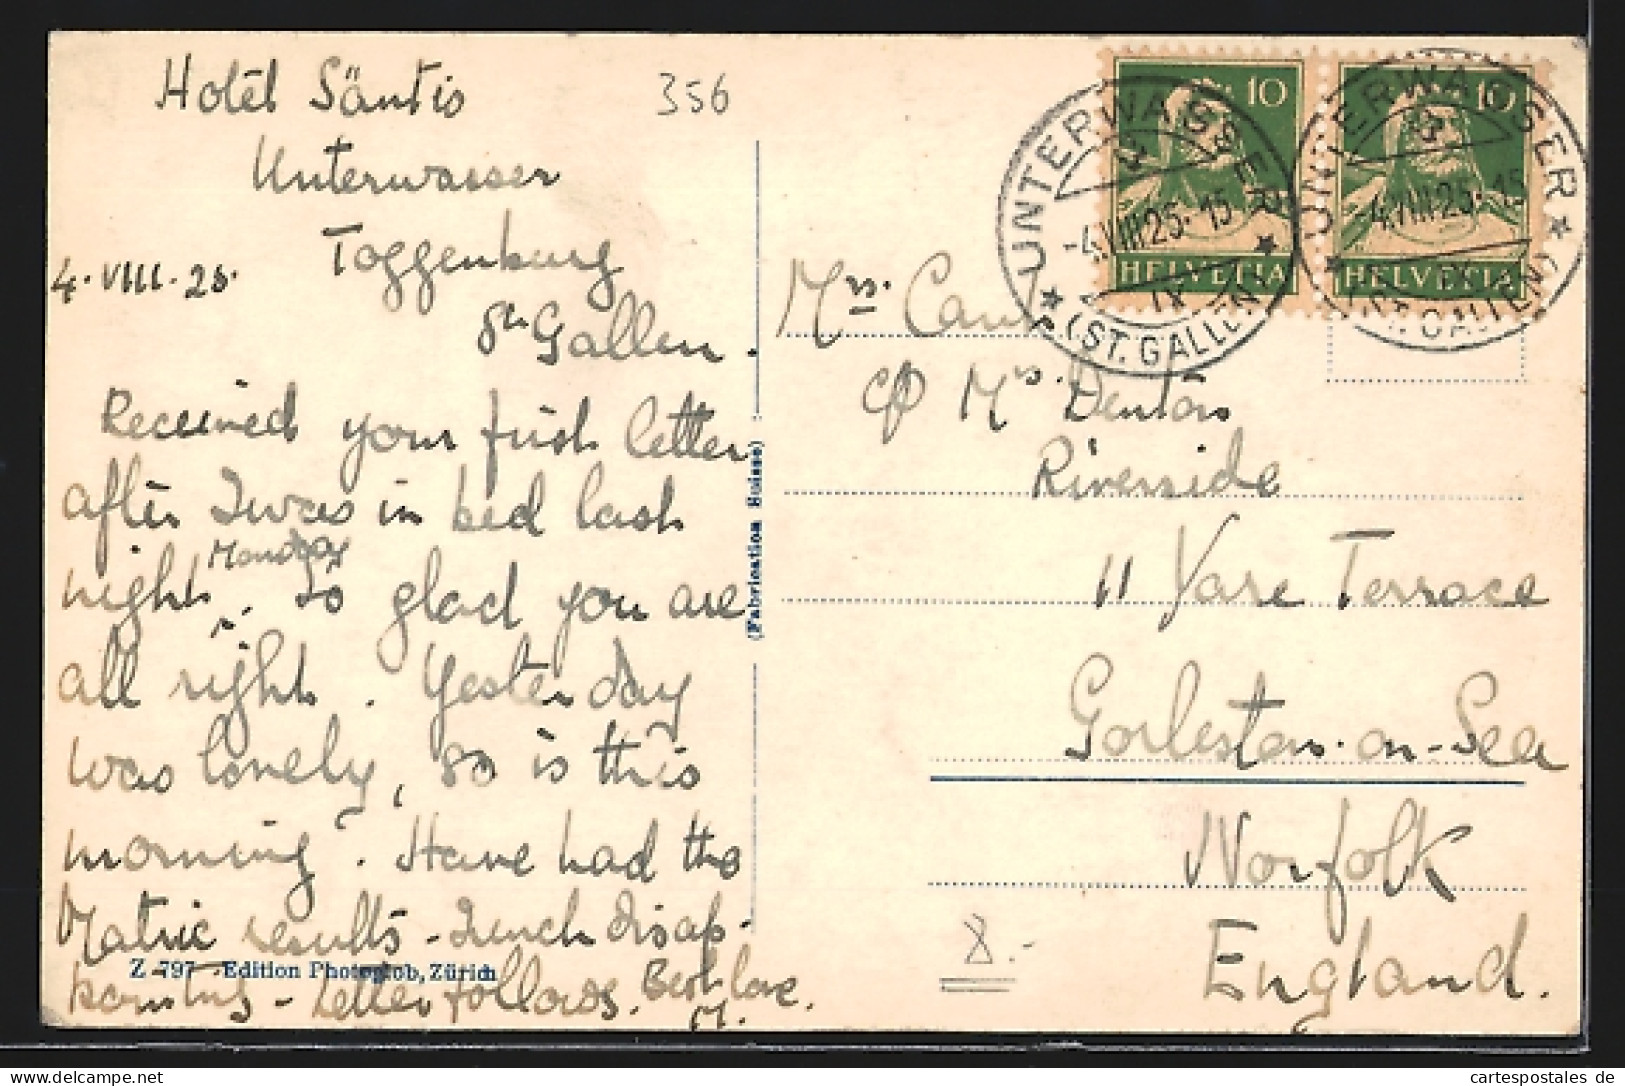 Hotel Säntis
356
Unterwasser
Toggenburg
4.VIII.25.
St Gallen.
Received your first letter
after I was in bed last
night Monday. So glad you are
all right. Yesterday
was lovely, so is this
morning. Have had the
Matric results - much disap-
pointed - Letter follows. Best love.
M.
Z 797 Edition Photoglob, Zürich
(Fabrication Suisse)
10 10
HELVETIA HELVETIA
UNTERWASSER
-4.VIII.25.-15
(ST. GALLEN)
UNTERWASSER
-4.VIII.25.-15
(ST. GALLEN)
Mrs.
c/o Mrs. Denton
Riverside
11 Yare Terrace
Gorleston-on-Sea
Norfolk
England.
8.-
www.cartespostales.de
cartespostales.de